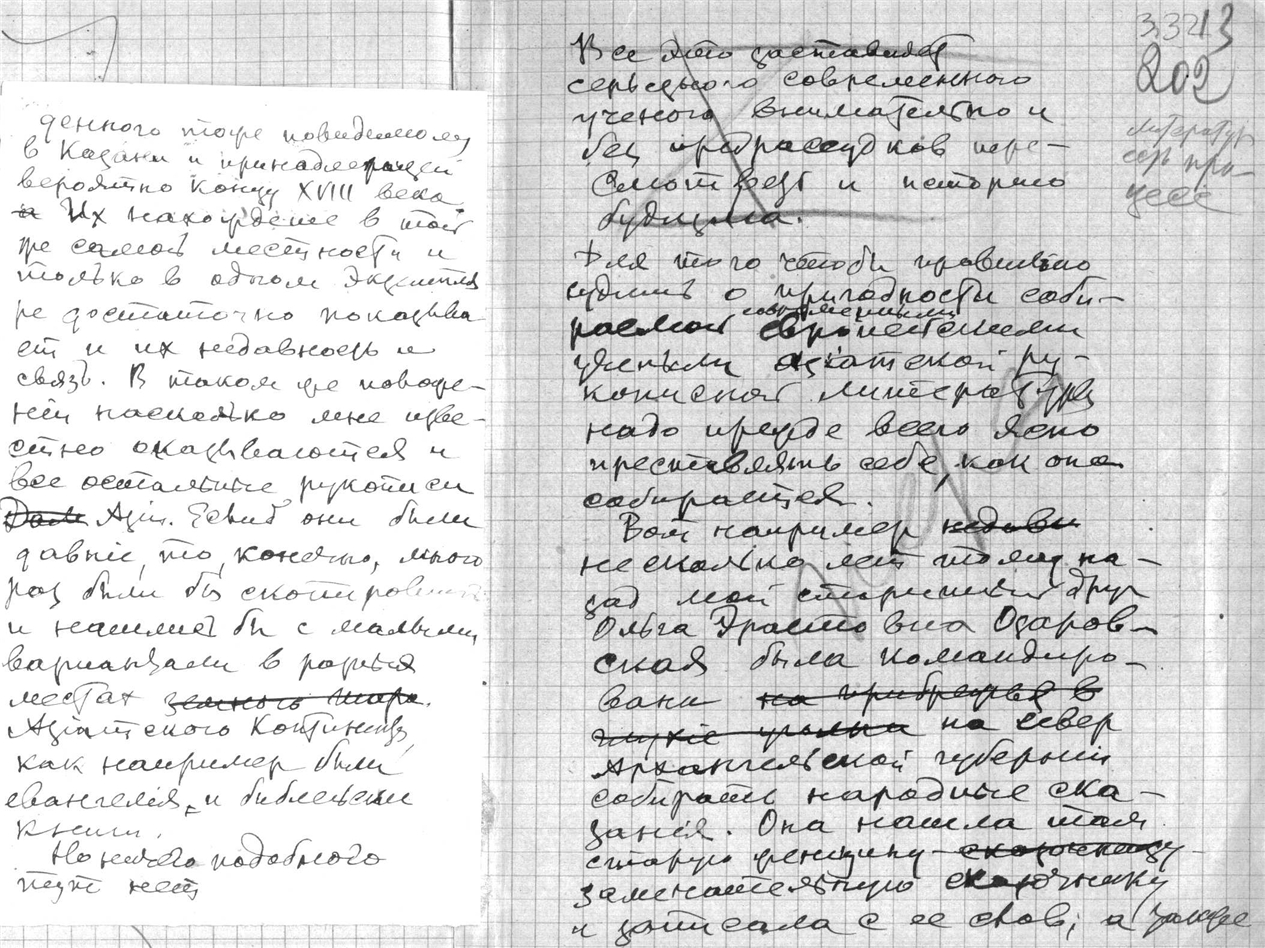 денного тоже повидимому
в Казани и принадлежащей
вероятно концу XVIII века
а Их нахождение в той
же самой местности и
только в одном экземпля
ре достаточно показыва
ет и их недавность и
связь. В таком же
насколько мне изве-
стно оказываются и
все остальные рукописи
Азіи. они были
давніе, то, конечно, много
раз были бы скопированы
и нашлись бы с малыми
варианцами в разных
местах земного шара.
Азіатского Континента,
как например были
евангелия, и библейские
книги.
Но ничего подобного
тут нет
3.3213
202
литератур
про-
цесс
Все это заставляет
серьезного современного
ученого внимательно и
без предрассудков пере-
смотреть и историю
будизма.
Для того чтобы правильно
судить о пригодности соби-
современными
раемой европейскими
учеными азіатской ру-
кописной литературы
надо прежде всего ясно
преставлять себе, как она
собирается.
Вот например недавн
несколько лет тому на-
зад мой старинный друг
Ольга Эрастовна Озаров-
ская была командиро-
вана на прибрежья в
на север
Архангельской губерніи
собирать народные ска-
занія. Она нашла там
старую женщину
замечательную
и записала с ее слов, а